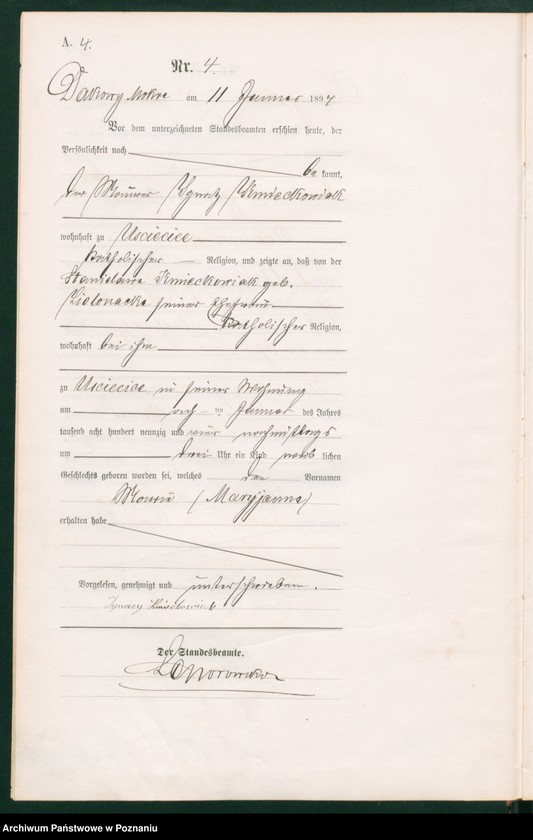 A. 4.
Nr. 4.
Dakowy Mokre am 11 Januar 1894
Vor dem unterzeichneten Standesbeamten erschien heute, der
Persönlichkeit nach
be kannt,
der Maurer Ignatz Kmieckowiak
wohnhaft zu Usciecice
katholischer Religion, und zeigte an, daß von der
Stanislawa Kmieckowiak geb.
seiner Ehefrau
katholischer Religion,
wohnhaft bei ihm
zu Usciecice in seiner Wohnung
am ach ten Januar des Jahres
tausend acht hundert neunzig und vier nachmittags
um drei Uhr ein Kind weib lichen
Geschlechts geboren worden sei, welches den Vornamen
(Maryjanna)
erhalten habe
Vorgelesen, genehmigt und unterschrieben.
Ignacy
Der Standesbeamte.
Archiwum Państwowe w Poznaniu